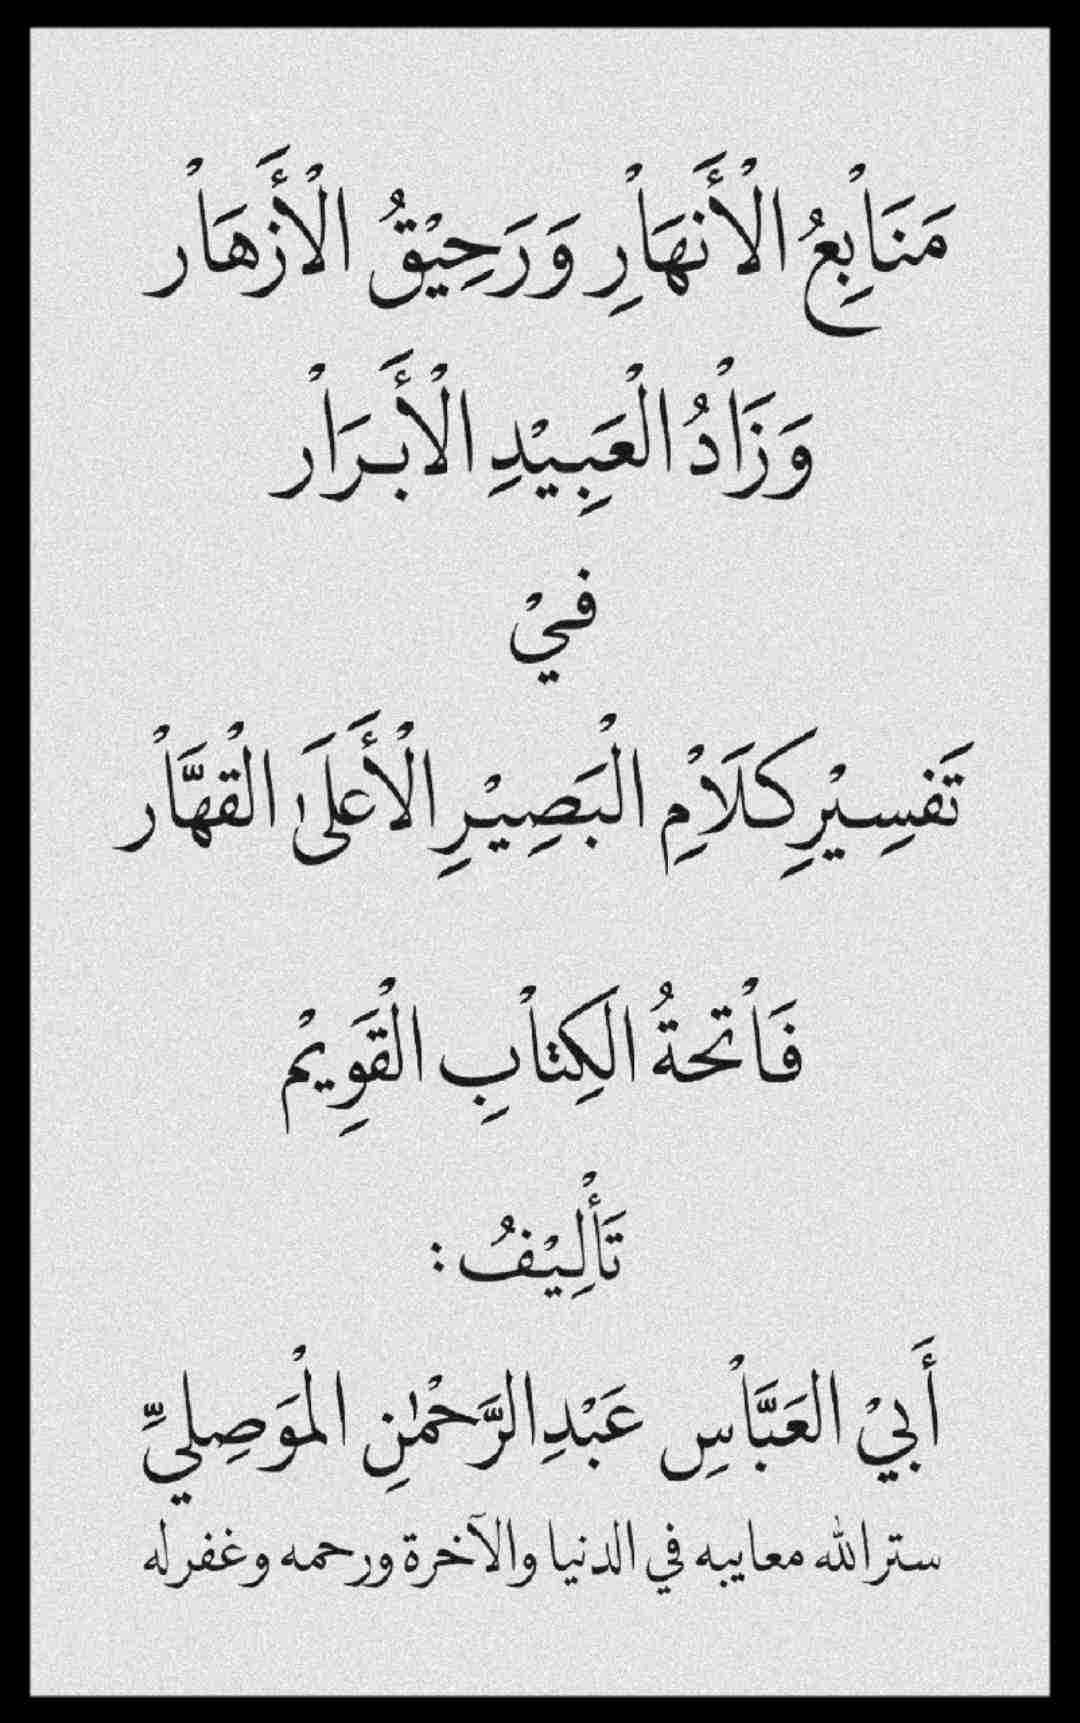 مَنَاْبِعُ الْأَنهَاْرِ وَرَحِيْقُ الْأَزهَاْر
وَزَاْدُ الْعَبِيْدِ الْأَبرَاْر
فيْ
تَفسِيْرِ كَلَاْمِ الْبَصِيْرِ الْأَعلَىٰ الْقهَّاْر
فَاْتحةُ الَكِتاْبِ الْقَوِيمْ
تَأْلِيْفُ :
أَبيْ العَبَّاْسِ عَبْدِ الرَّحْمٰنِ الْمَوصِليِّ
ستر الله معايبه في الدنيا والآخرة ورحمه وغفر له